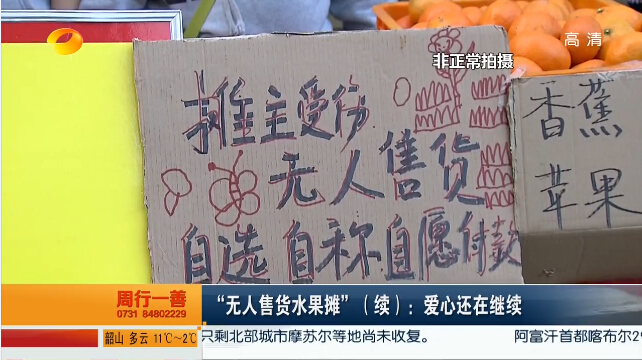 高清
非正常拍摄
摊主受伤
无人售货
自选 自称 自愿付款
香蕉
苹果
周行一善
0731 84802229
“无人售货水果摊”（续）：爱心还在继续
韶山 多云 11℃~2℃
只剩北部城市摩苏尔等地尚未收复。
阿富汗首都喀布尔2